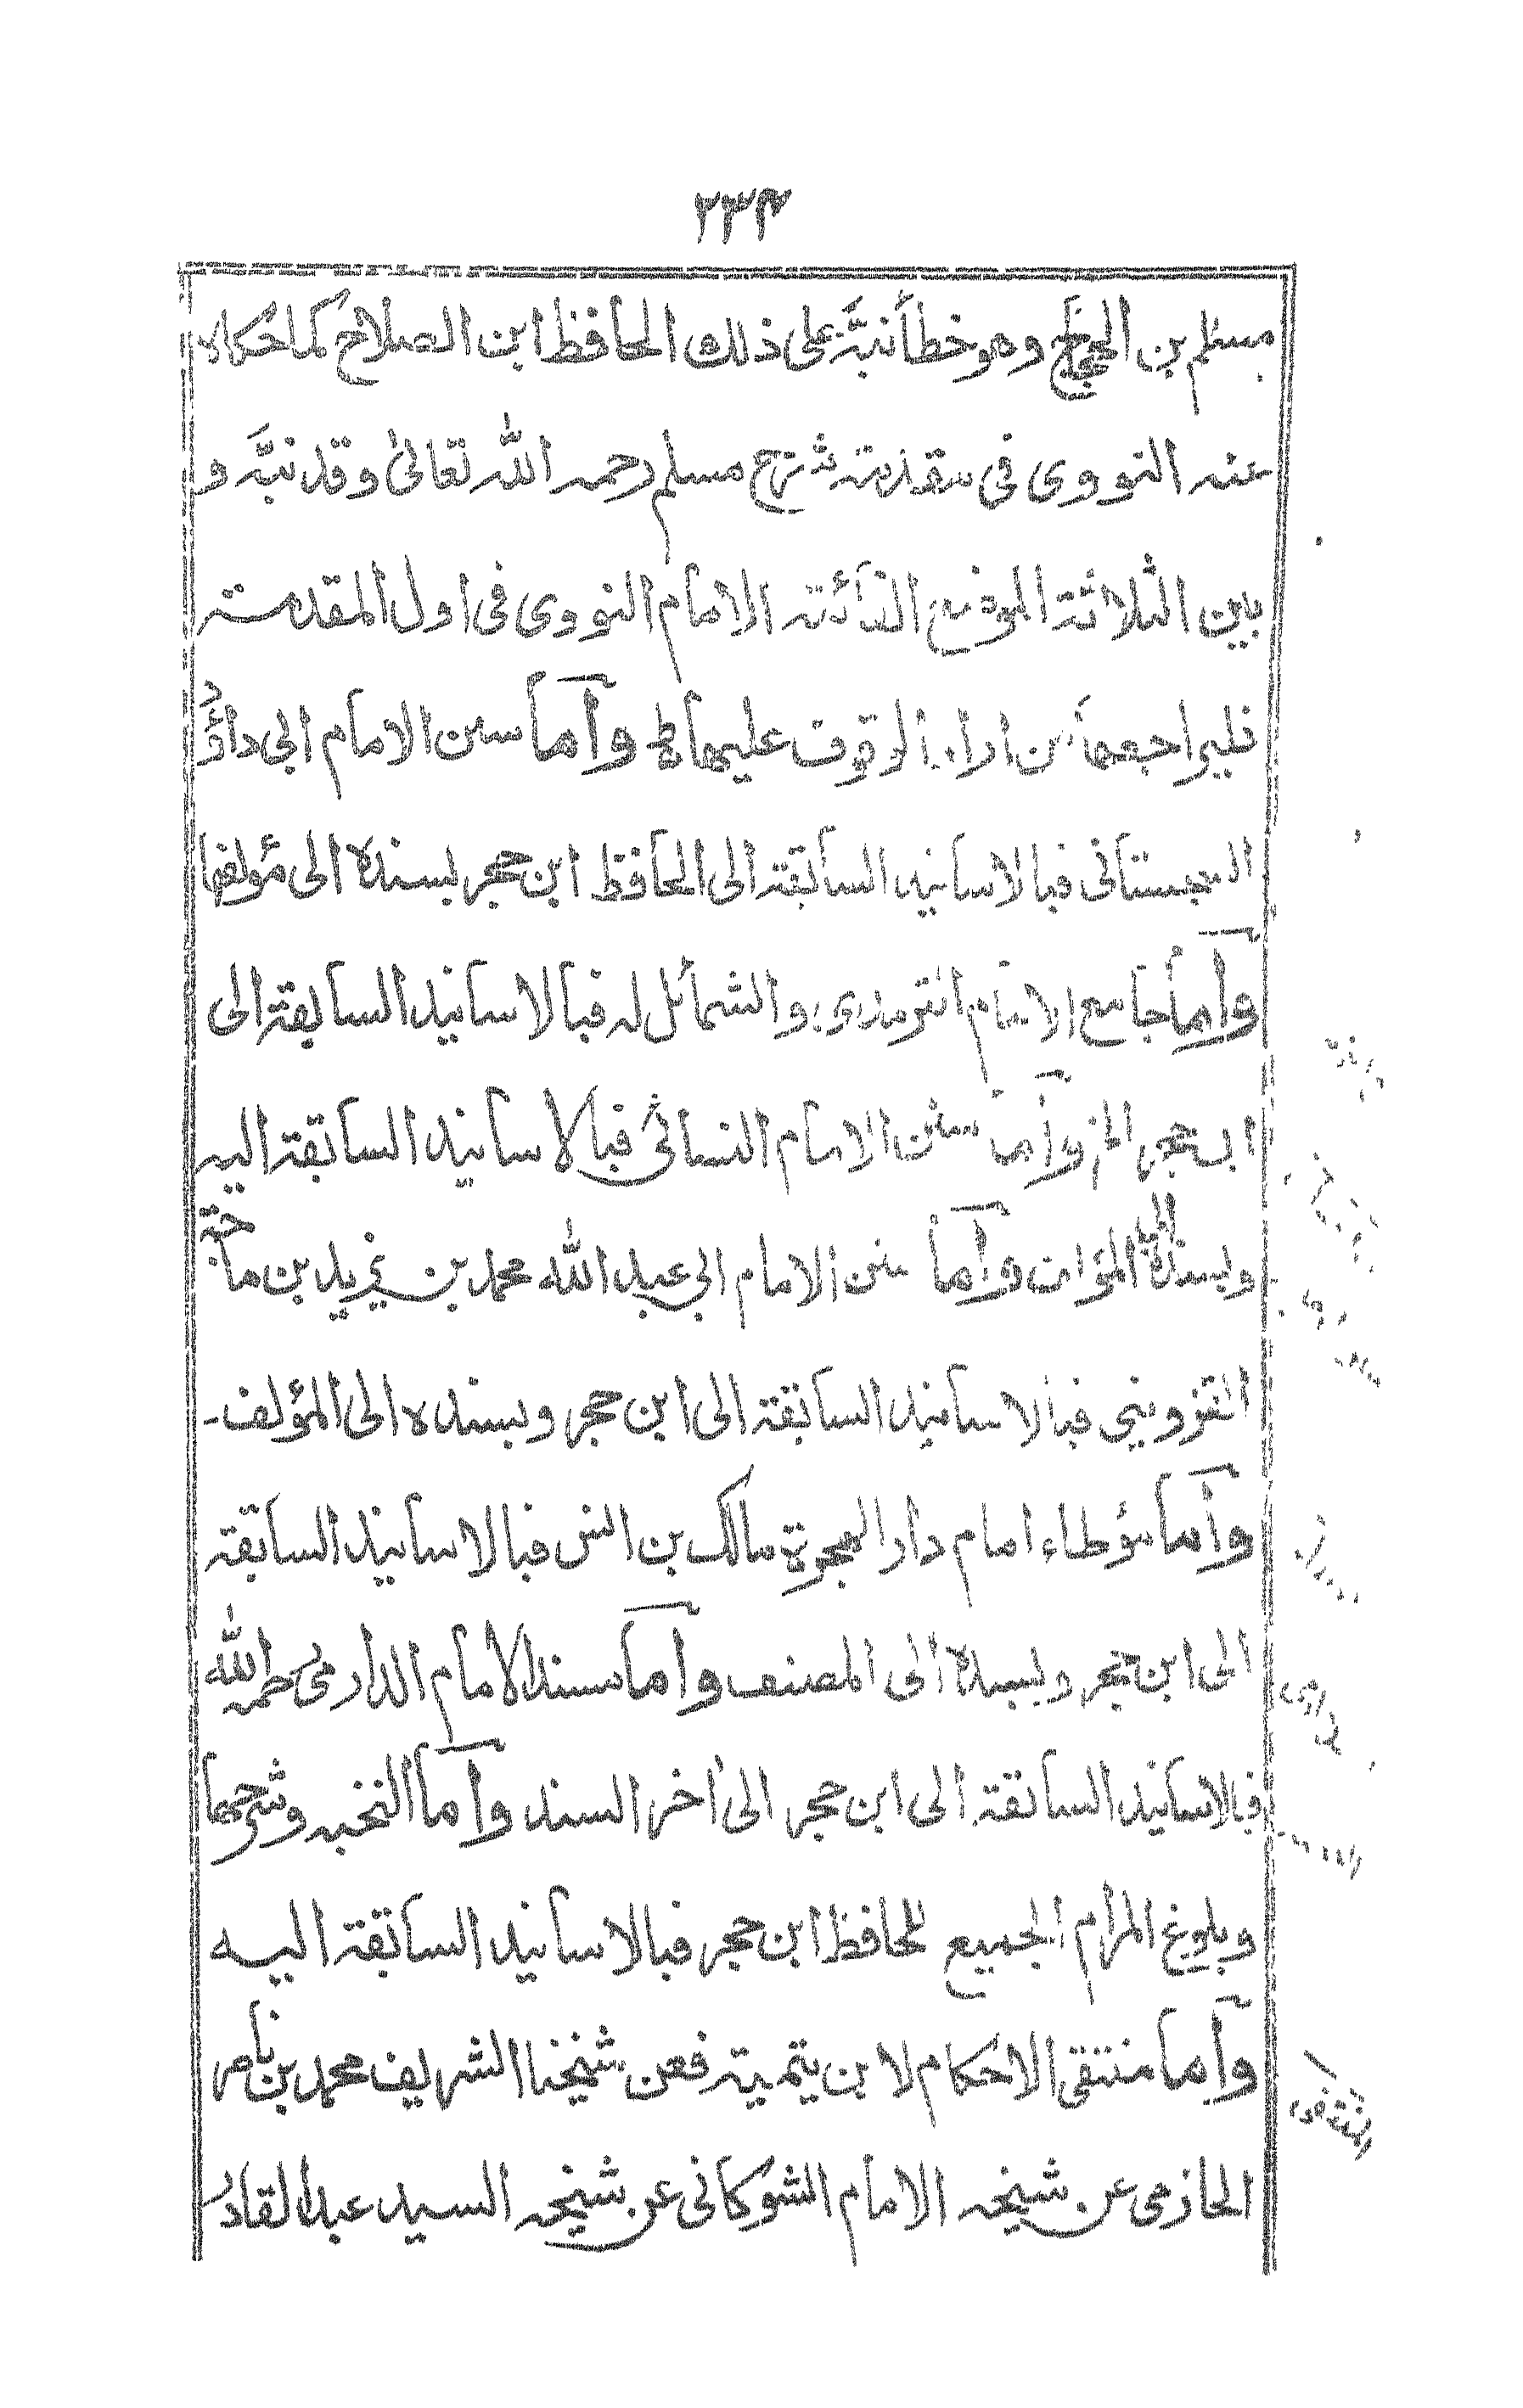 ٢٣٤
مسلم بن الحجاج وهو خطأ نبَّه على ذلك الحافظ ابن الصلاح كما حكاه
عنه النووى فى مقدمته شرح مسلم رحمه الله تعالىٰ وقد نبَّه و
بين الثلاثة المواضع الامام النووى فى اول المقدمته
فليراجعها من اراد الوقوف عليها وآما سنن الامام ابى داؤد
السجستانى فبالاسانيد السابقته الى الحافظ ابن حجر بسنده الى مؤلفها
وآما جامع الامام الترمذى والشمائل له فبالاسانيد السابقته الى
ابن حجر الخ وآما سنن الامام النسائى فبالاسانيد السابقته اليه
وبسنده الى المؤلف وآما سنن الامام ابى عبد الله محمد بن يزيد بن ماجته
القزوينى فبالاسانيد السابقته الى ابن حجر وبسنده الى المؤلف-
وآما مؤطاء امام دار الهجرة مالك بن انس فبالاسانيد السابقته
الى ابن حجر وبسنده الى المصنف وآما مسند الامام الدارمى رحمه الله
فبالاسانيد السابقته الى ابن حجر الىٰ اٰخر السند وآما النخبه وشرحها
وبلوغ المرام الجميع للحافظ ابن حجر فبالاسانيد السابقته اليه
وآما منتقى الاحكام لابن تيميته فعن شيخنا الشريف محمد بن ناصر
الحازمى عن شيخه الامام الشوكانى عن شيخه السيد عبد القادر